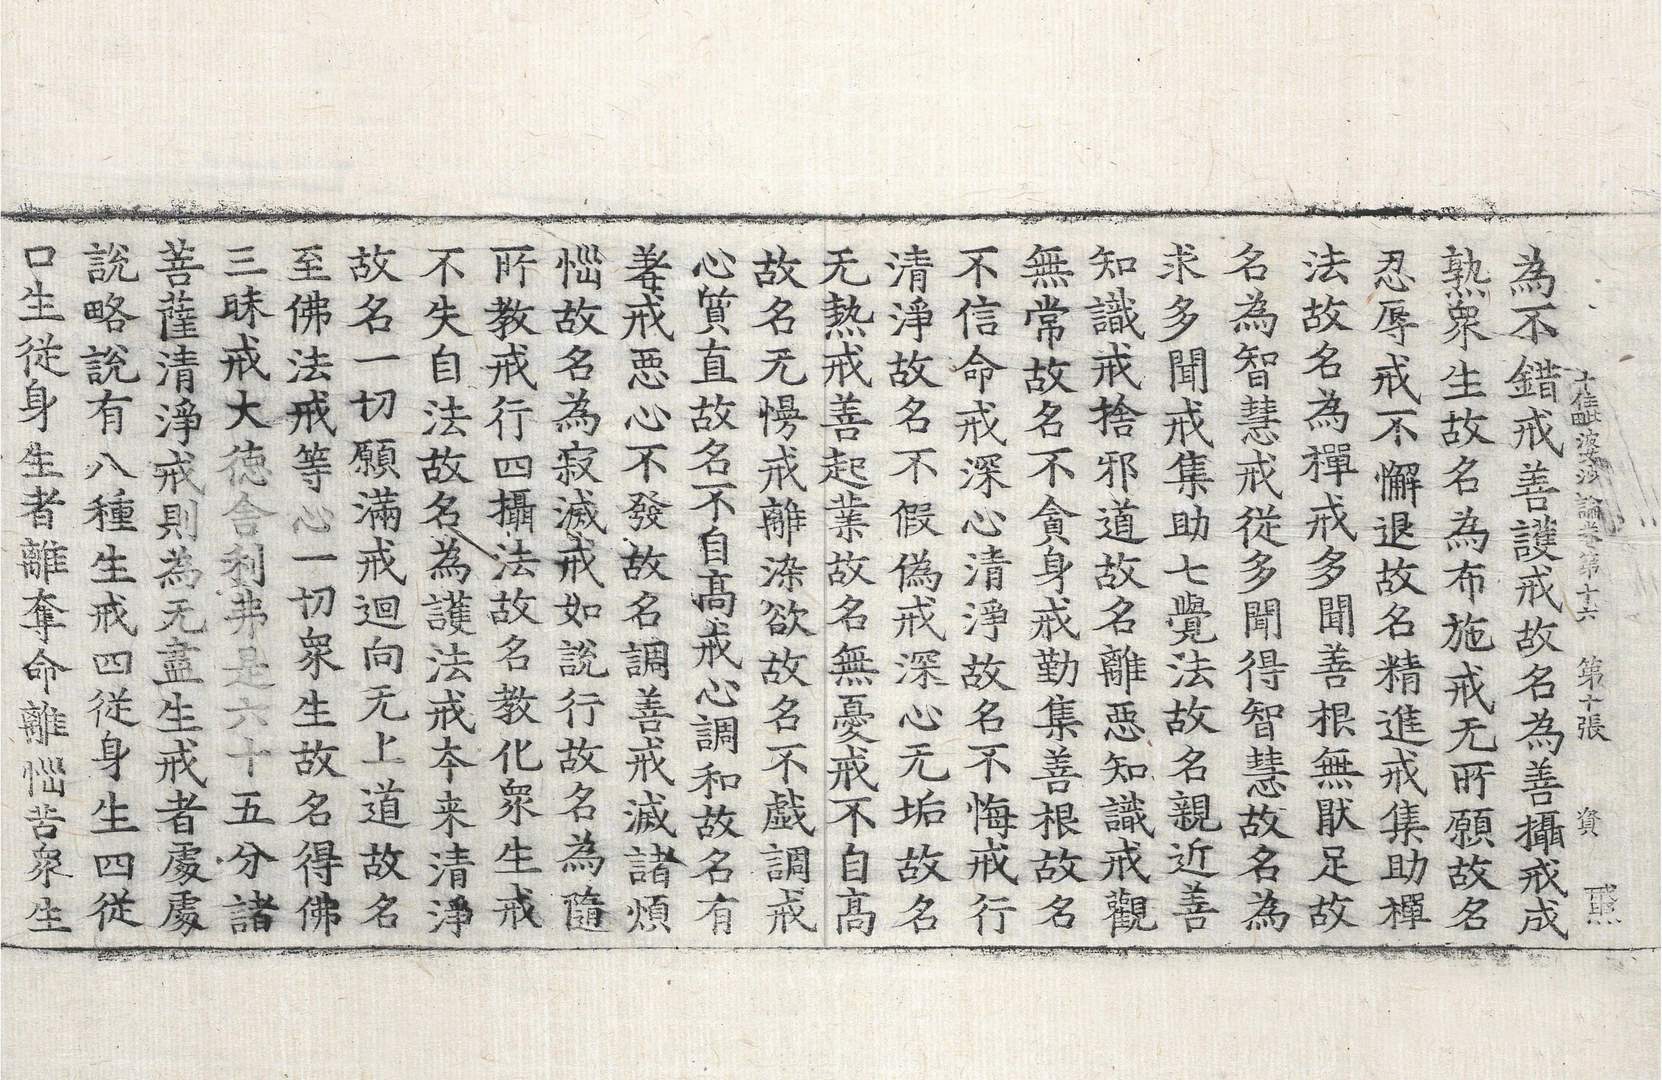 十住毗婆沙論卷第十六　第十張　資　𢧵
為不錯戒善護戒故名為善攝戒成
熟衆生故名為布施戒无所願故名
忍辱戒不懈退故名精進戒集助禪
法故名為禪戒多聞善根無猒足故
名為智慧戒從多聞得智慧故名為
求多聞戒集助七覺法故名親近善
知識戒捨邪道故名離惡知識戒觀
無常故名不貪身戒勤集善根故名
不信命戒深心清淨故名不悔戒行
清淨故名不假偽戒深心无垢故名
无熱戒善起業故名無憂戒不自高
故名无慢戒離染欲故名不戲調戒
心質直故名不自高戒心調和故名有
羞戒惡心不發故名調善戒滅諸煩
惱故名為寂滅戒如說行故名為隨
所教戒行四攝法故名教化衆生戒
不失自法故名為護法戒本来清淨
故名一切願滿戒迴向无上道故名
至佛法戒等心一切衆生故名得佛
三昧戒大德舍利弗是六十五分諸
菩薩清淨戒則為无盡生戒者處處
說略說有八種生戒四從身生四從
口生從身生者離奪命離惱苦衆生